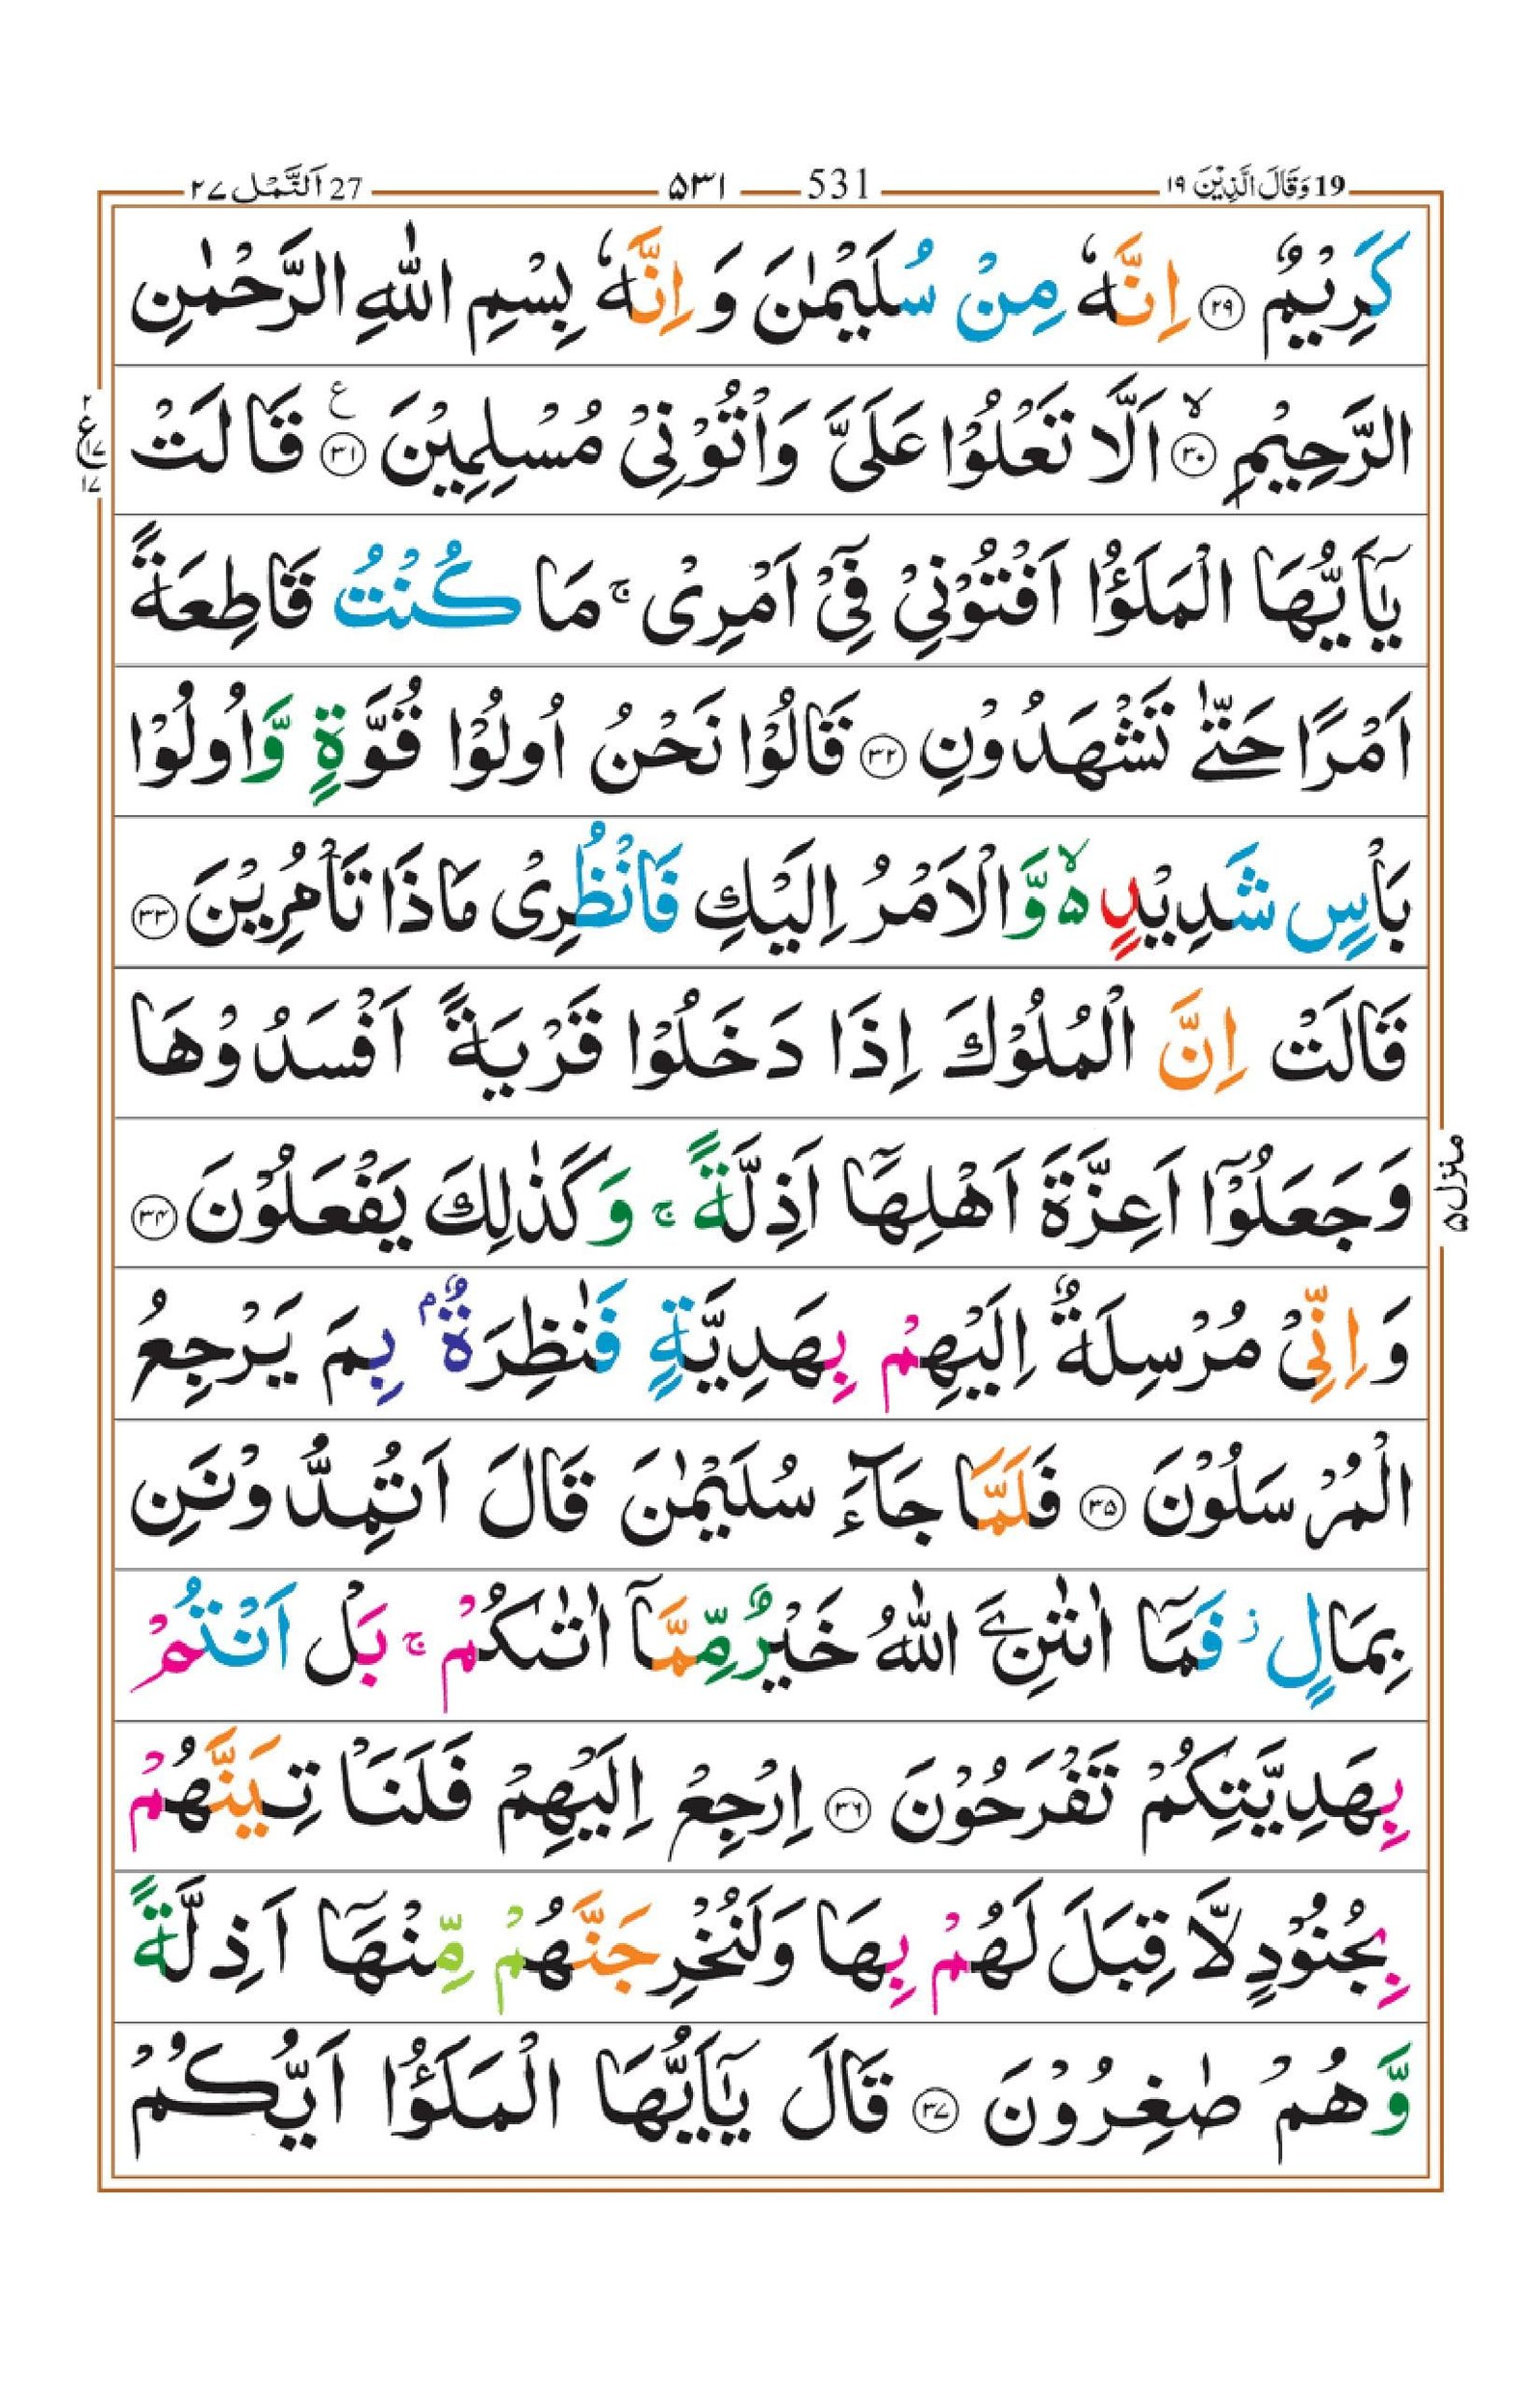 19 وَقَالَ الَّذِيْنَ ١٩ 531 ۵۳۱ 27 اَلنَّمْل ۲۷
كَرِيْمٌ ﴿۲۹﴾ اِنَّهٗ مِنْ سُلَيْمٰنَ وَ اِنَّهٗ بِسْمِ اللّٰهِ الرَّحْمٰنِ
الرَّحِيْمِ ﴿۳۰﴾ۙ اَلَّا تَعْلُوْا عَلَیَّ وَاْتُوْنِیْ مُسْلِمِيْنَ ﴿۳۱﴾ع قَالَتْ
۲ ع ۱۷ ۱۷
يٰۤاَيُّهَا الْمَلَؤُا اَفْتُوْنِیْ فِیْۤ اَمْرِیْ ۚ مَا كُنْتُ قَاطِعَةً
اَمْرًا حَتّٰی تَشْهَدُوْنِ ﴿۳۲﴾ قَالُوْا نَحْنُ اُولُوْا قُوَّةٍ وَّاُولُوْا
بَاْسٍ شَدِيْدٍ ۵ۙ وَّالْاَمْرُ اِلَيْكِ فَانْظُرِیْ مَاذَا تَاْمُرِيْنَ ﴿۳۳﴾
قَالَتْ اِنَّ الْمُلُوْكَ اِذَا دَخَلُوْا قَرْيَةً اَفْسَدُوْهَا
وَجَعَلُوْۤا اَعِزَّةَ اَهْلِهَاۤ اَذِلَّةً ۚ وَكَذٰلِكَ يَفْعَلُوْنَ ﴿۳۴﴾
منزل ۵
وَ اِنِّیْ مُرْسِلَةٌ اِلَيْهِمْ بِهَدِيَّةٍ فَنٰظِرَةٌۢ بِمَ يَرْجِعُ
الْمُرْسَلُوْنَ ﴿۳۵﴾ فَلَمَّا جَآءَ سُلَيْمٰنَ قَالَ اَتُمِدُّوْنَنِ
بِمَالٍ ؗ فَمَاۤ اٰتٰىنِۦَ اللّٰهُ خَيْرٌ مِّمَّاۤ اٰتٰىكُمْ ۚ بَلْ اَنْتُمْ
بِهَدِيَّتِكُمْ تَفْرَحُوْنَ ﴿۳۶﴾ اِرْجِعْ اِلَيْهِمْ فَلَنَاْتِيَنَّهُمْ
بِجُنُوْدٍ لَّا قِبَلَ لَهُمْ بِهَا وَلَنُخْرِجَنَّهُمْ مِّنْهَاۤ اَذِلَّةً
وَّهُمْ صٰغِرُوْنَ ﴿۳۷﴾ قَالَ يٰۤاَيُّهَا الْمَلَؤُا اَيُّكُمْ